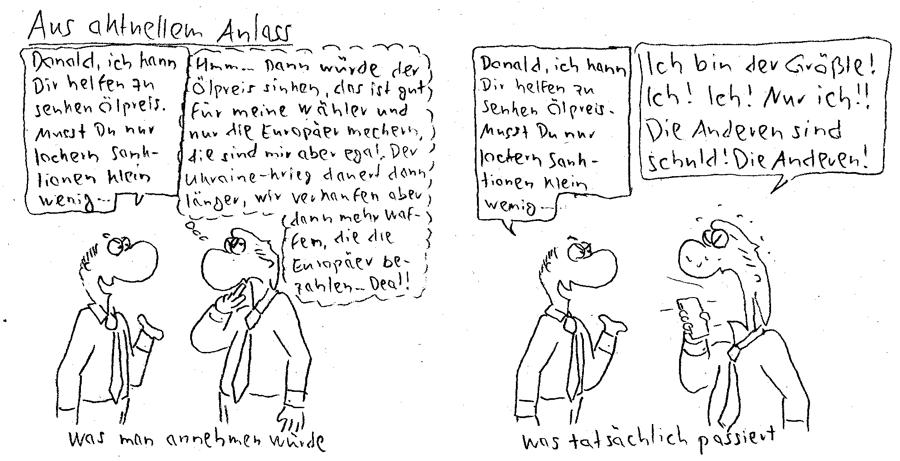 Aus aktuellem Anlass
Donald, ich kann
Dir helfen zu
senken Ölpreis.
Musst Du nur
lockern Sank-
tionen klein
wenig...
Hmm... Dann würde der
Ölpreis sinken, das ist gut
für meine Wähler und
nur die Europäer meckern,
die sind mir aber egal. Der
Ukraine-Krieg dauert dann
länger, wir verkaufen aber
dann mehr Waf-
fen, die die
Europäer be-
zahlen... Deal!
Was man annehmen würde
Donald, ich kann
Dir helfen zu
senken Ölpreis.
Musst Du nur
lockern Sank-
tionen klein
wenig...
Ich bin der Größte!
Ich! Ich! Nur ich!!
Die Anderen sind
schuld! Die Anderen!
was tatsächlich passiert